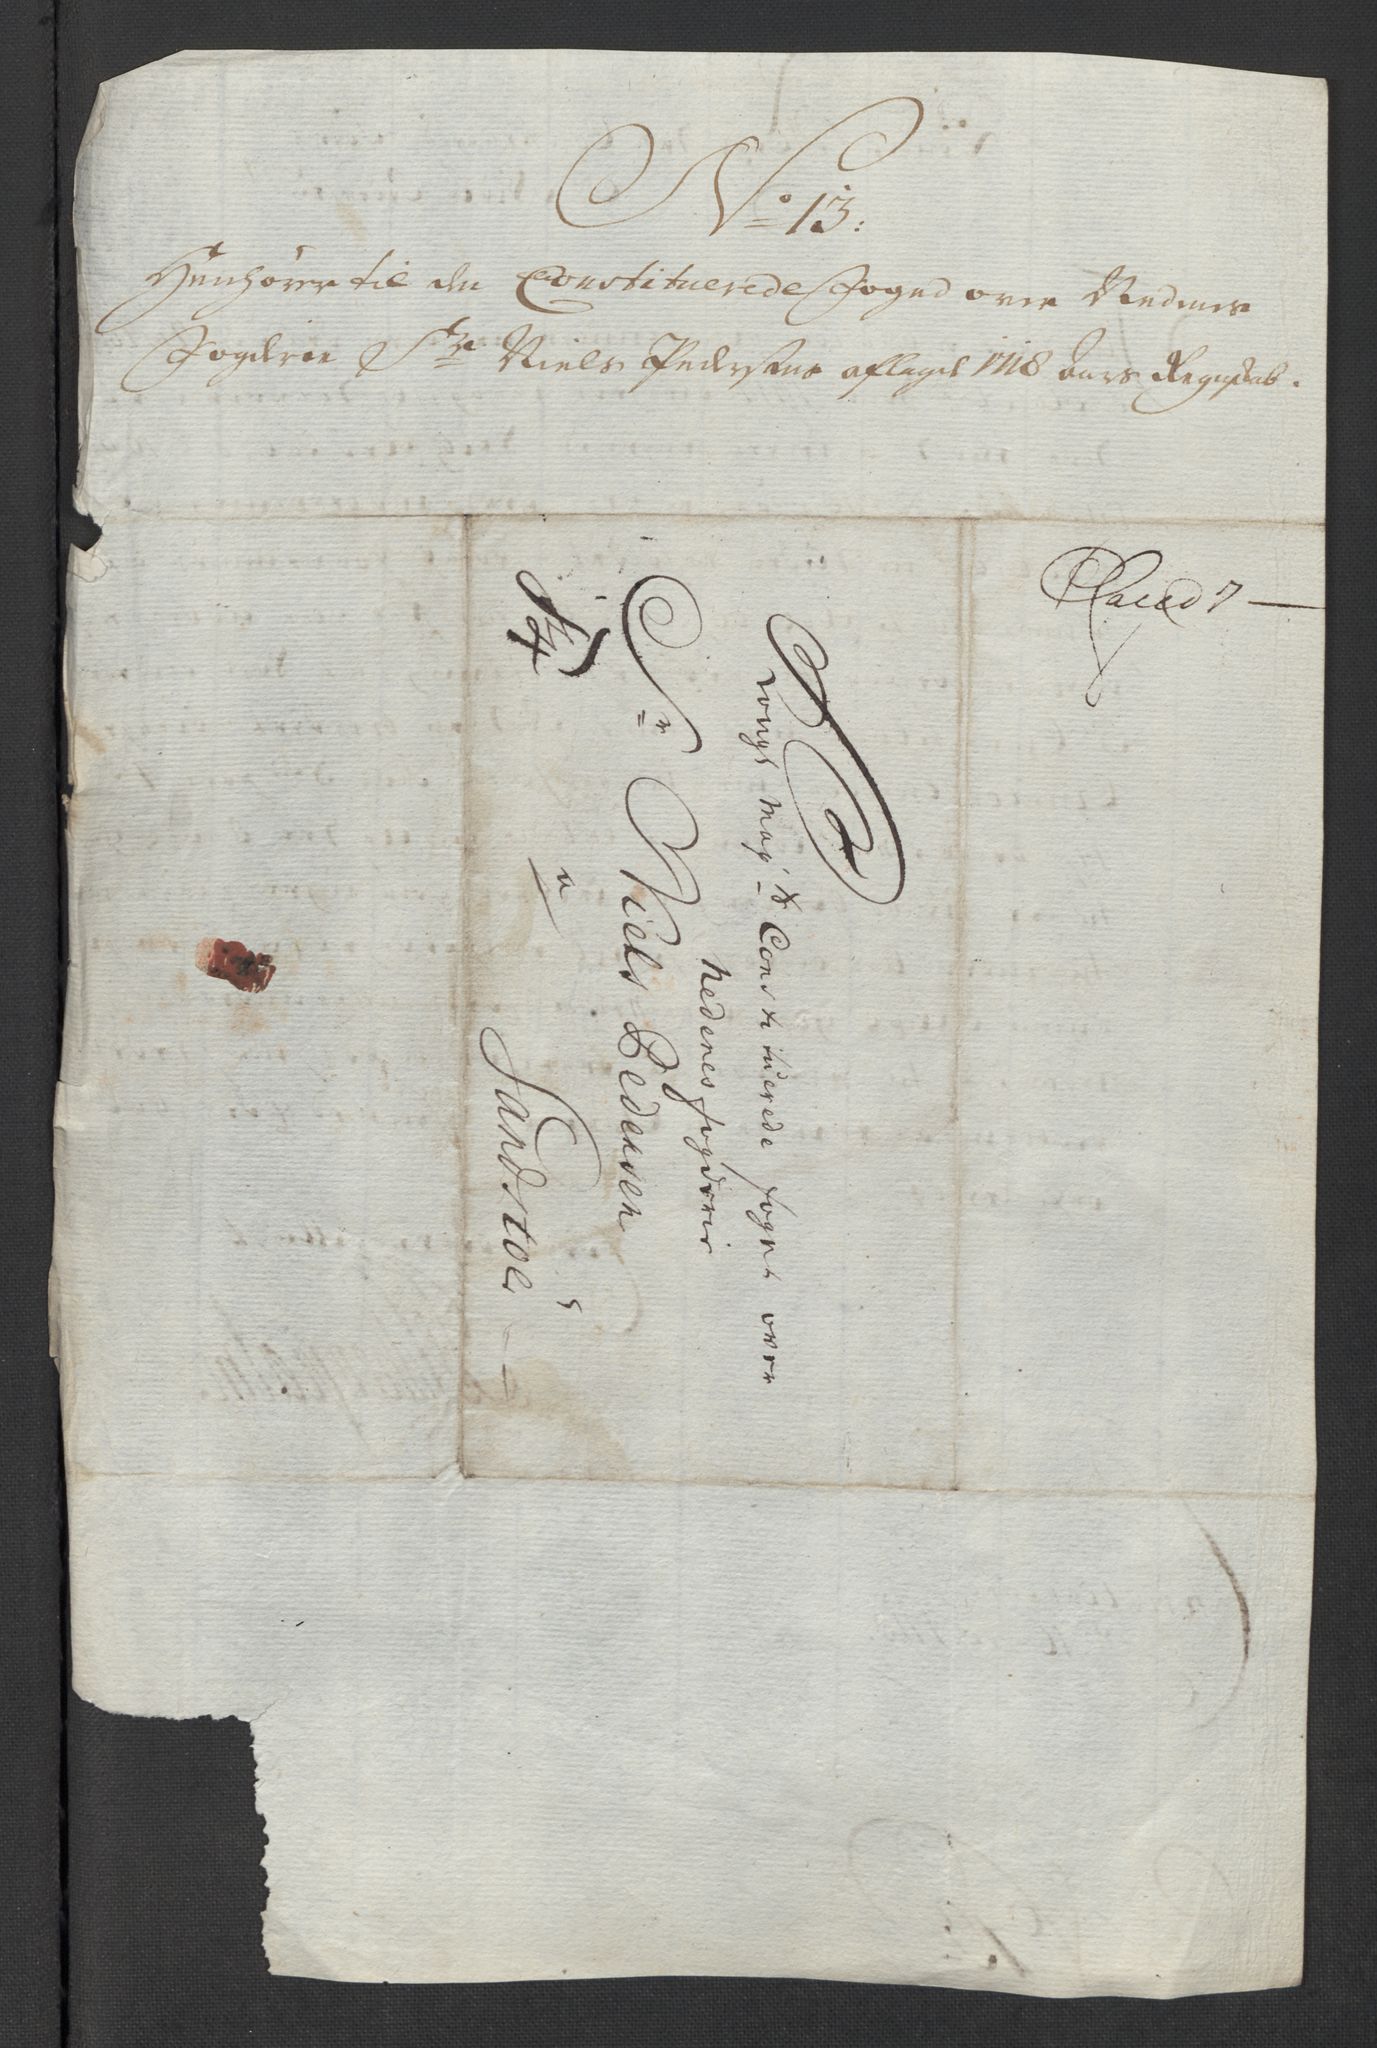 No 13:
Henhörer til den Constituerede Fogd over Nedenes
Fogderie Sr Niels Pedersens aflagde 1718 Aars Regnskab.
Kongl Mayts Constituerede fogt over
Nedenes fogderie
Sr Niels Pedersen
a
Sandstoe